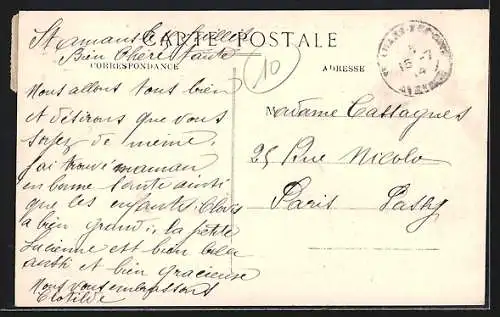 St amans les
CARTE POSTALE
Bien Chère Tante
CORRESPONDANCE
ADRESSE
10
15 - 7
14
Nous allons tous bien
et désirons que vous
soyez de même.
J'ai trouvé maman
en bonne santé ainsi
que les enfants. Clovis
a bien grandi, la petite
Lucienne est bien belle
aussi et bien gracieuse
Nous vous embrassons
Clotilde
Madame Castagnes
25 Rue Nicolo
Paris Passy